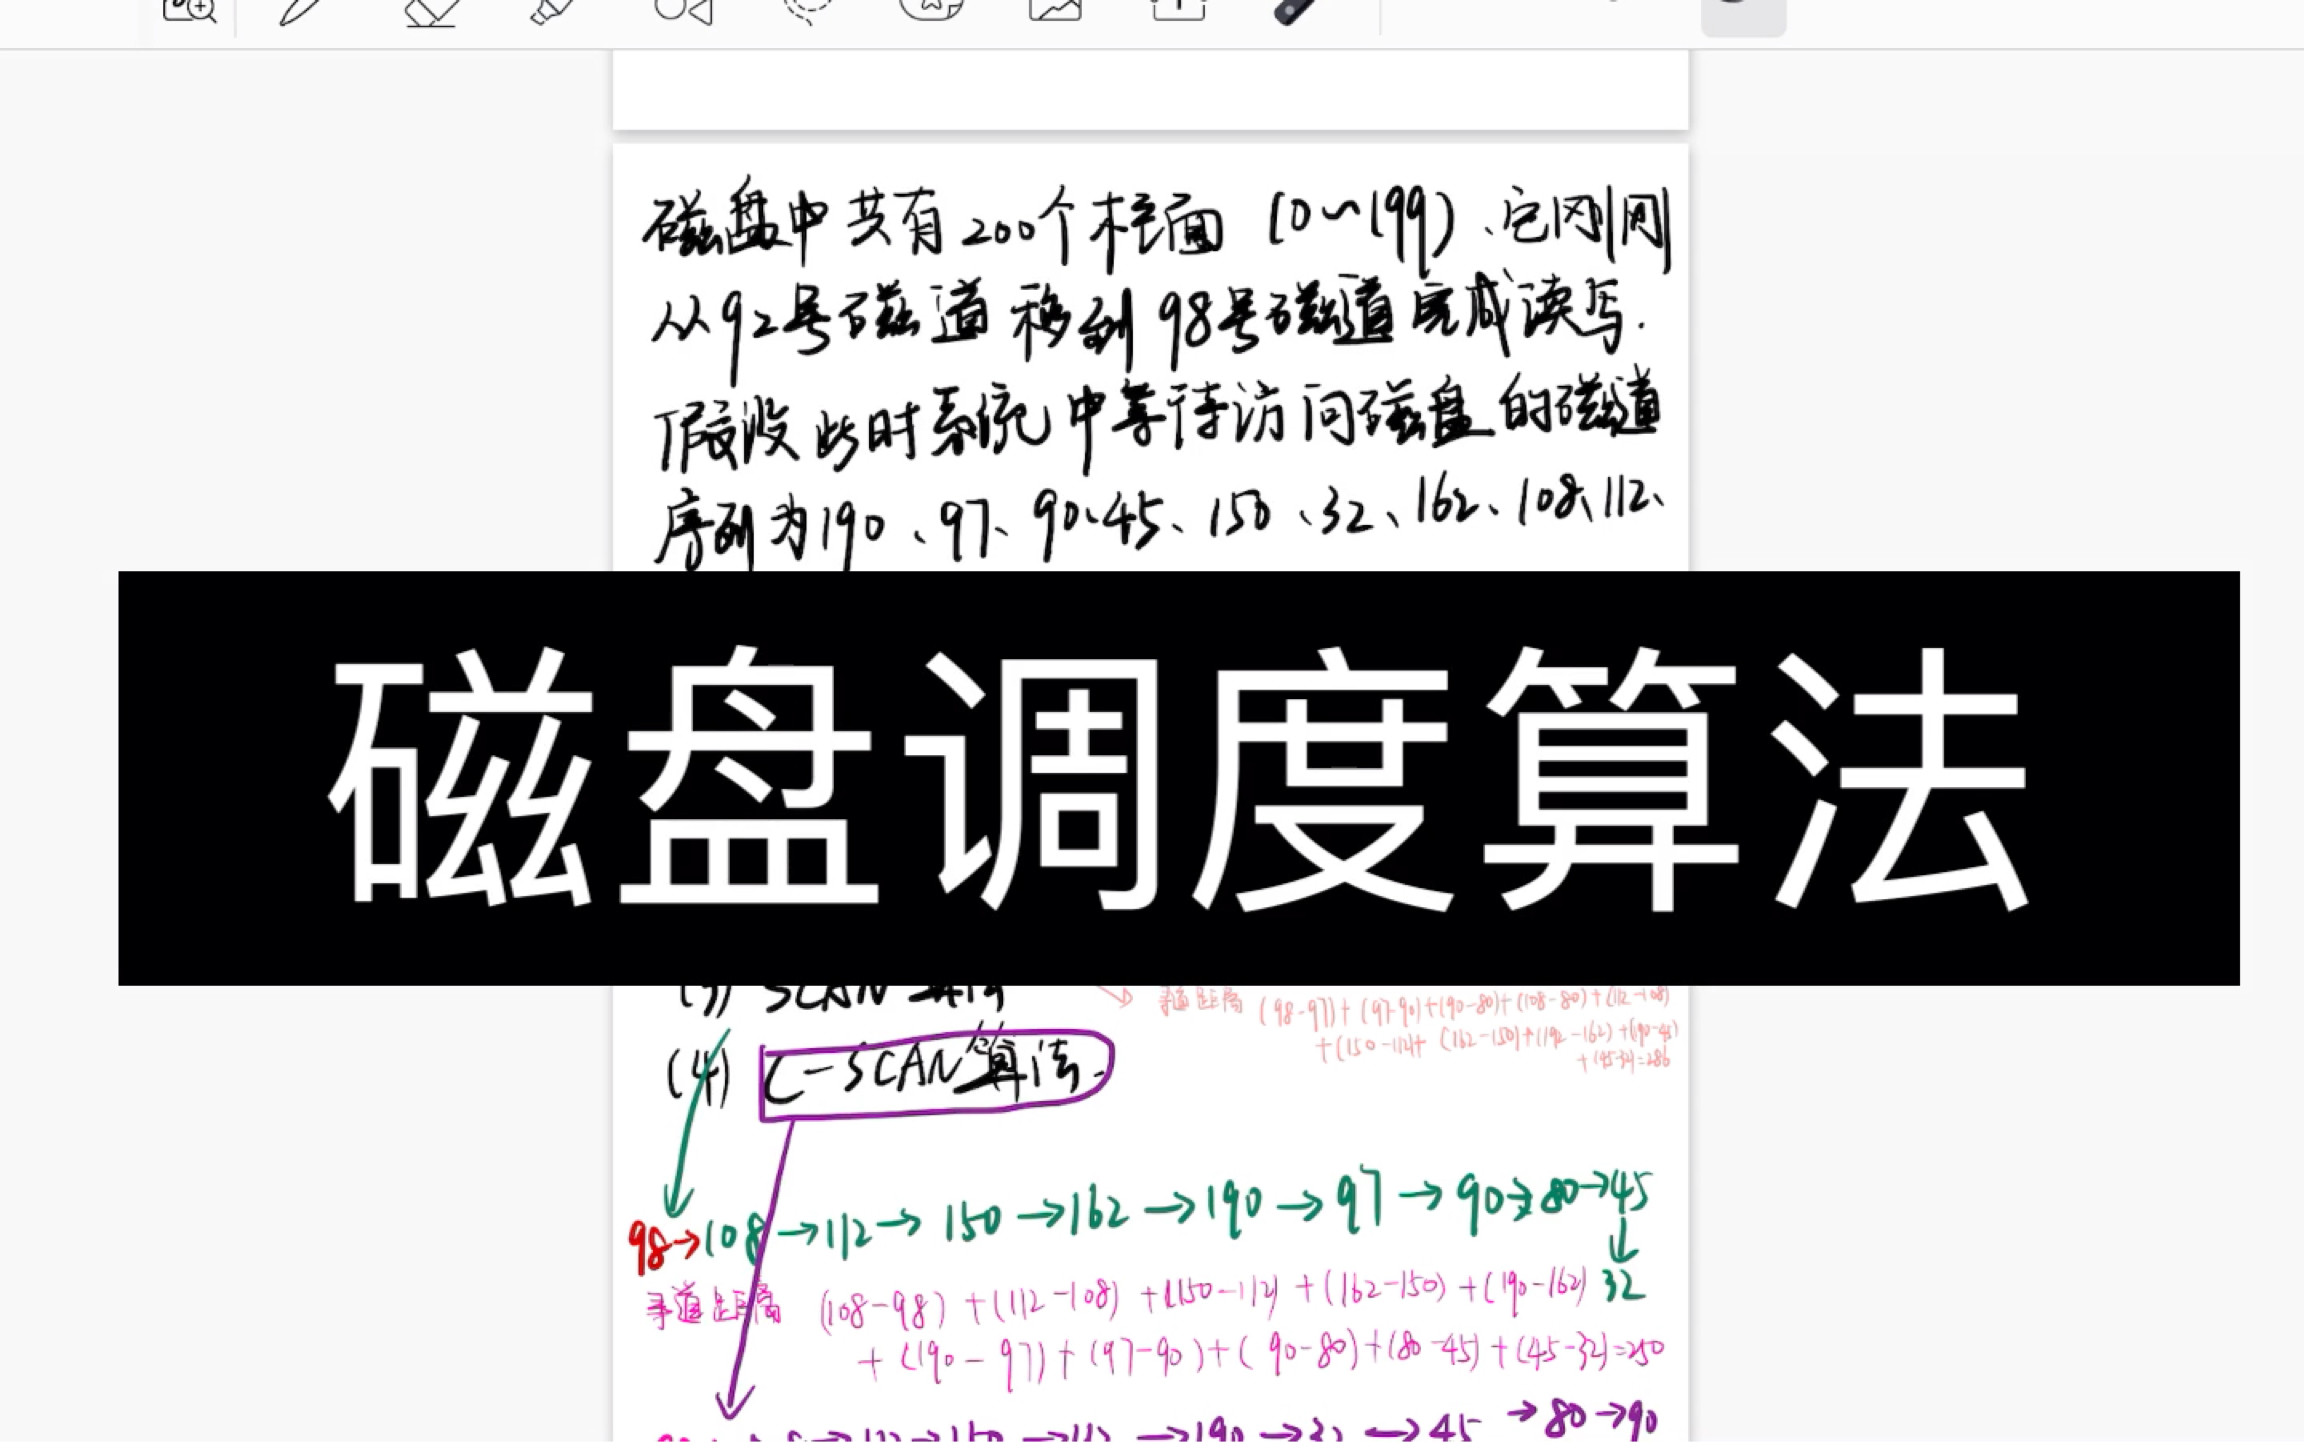 磁盘中共有200个柱面（0~199）、它刚刚
从92号磁道移到98号磁道完成读写.
假设此时系统中等待访问磁盘的磁道
序列为190、97、90、45、150、32、162、108、112、
磁盘调度算法
(3) SCAN 算法
寻道距离 (98-97)+(97-90)+(90-80)+(108-80)+(112-108)
+(150-112)+(162-150)+(192-162)+(190-45)
+(45-32)=286
(4) C-SCAN算法.
98→108→112→150→162→190→97→90→80→45
↓
寻道距离 (108-98)+(112-108)+(150-112)+(162-150)+(190-162) 32
+(190-97)+(97-90)+(90-80)+(80-45)+(45-32)=250
→190→32→45→80→90